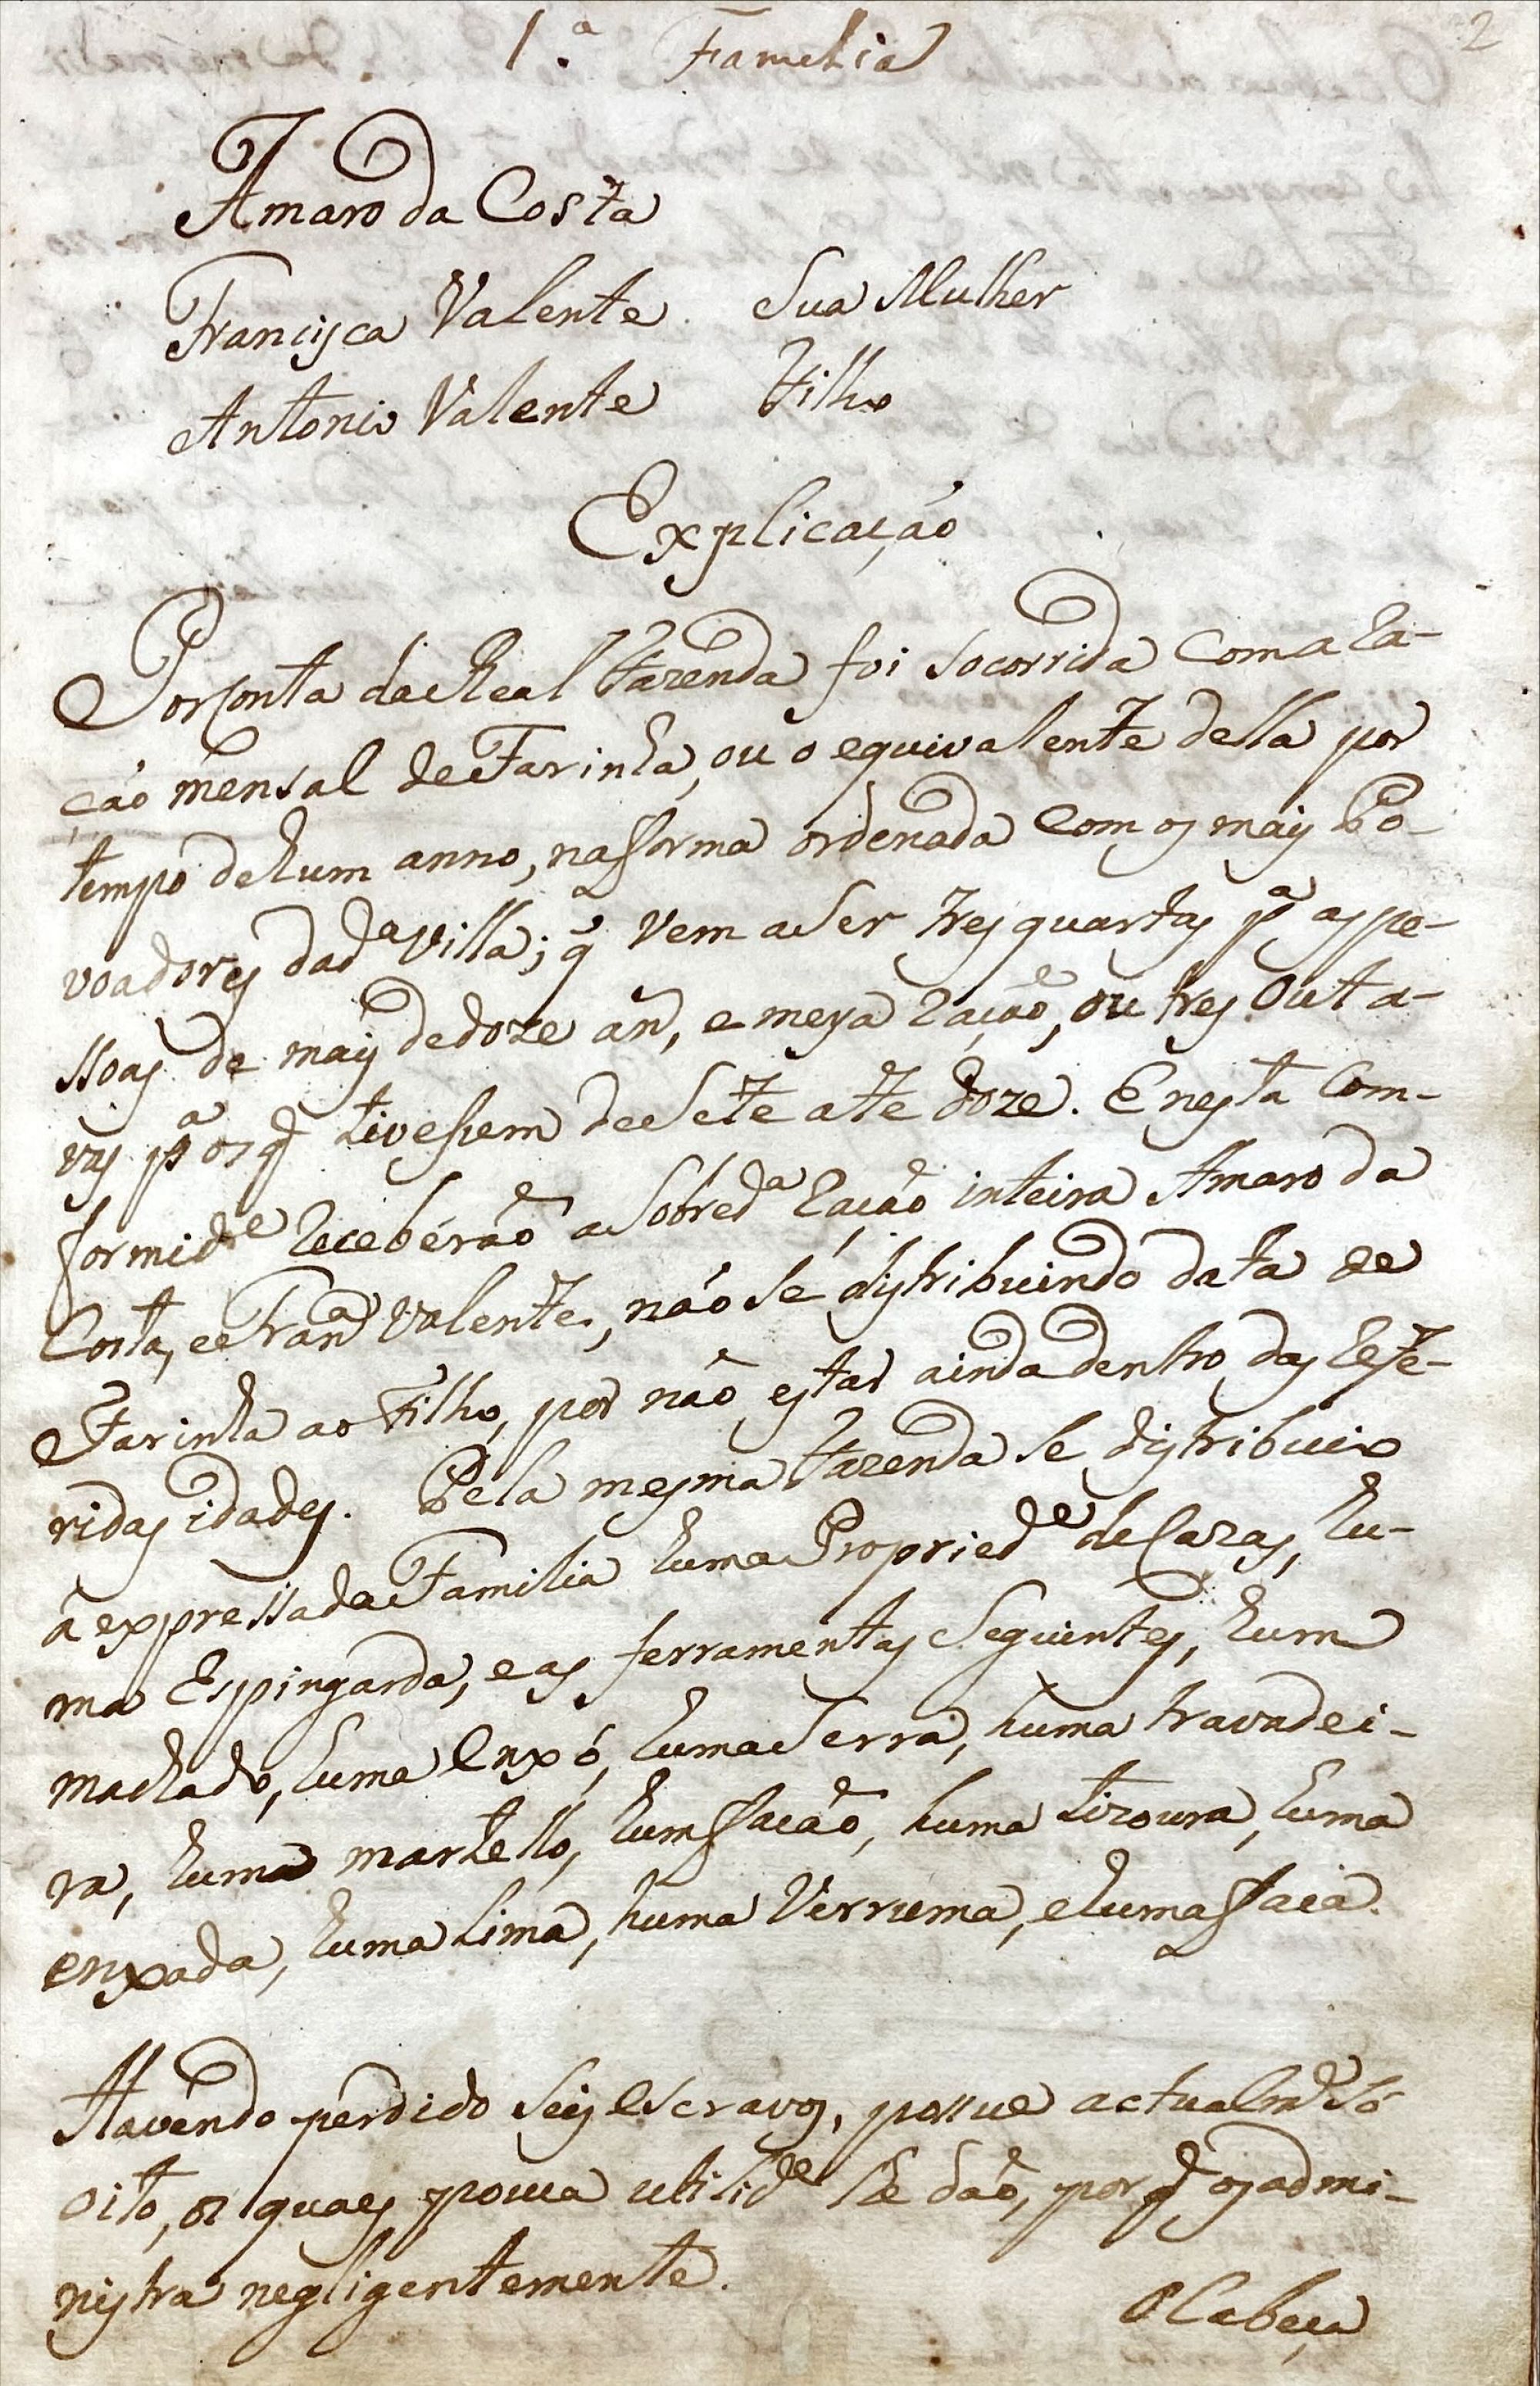 2
1.ª Famelia
Amaro da Costa
Francisca Valente Sua Mulher
Antonio Valente Filho
Explicação
Por conta da Real Fazenda foi socorrida com a ra-
ção mensal de Farinha, ou o equivalente della por
tempo de hum anno, na forma ordenada com os mais Po-
voadores da d.ª Villa; q̃ vem a ser tres quartas p.ª as pe-
ssoas de mais de doze an, e meya ração, ou tres outa-
vas p.ª os q̃ tivessem de sete ate doze. E nesta com-
formid.e receberão a sobred.ª ração inteira Amaro da
Costa, e Fran.ca Valente, não se distribuindo data de
Farinha ao Filho, por não estar ainda dentro das refe-
ridas idades. Pela mesma Fazenda se distribuio
á expressada Familia huma Propried.e de Cazas, hu-
ma Espingarda, e as ferramentas seguintes, hum
machado, huma enxó, huma Serra, huma travadei-
ra, huma martello, hum facão, huma tizoura, huma
enxada, huma Lima, huma Verruma, e huma faca.
Havendo perdido seis escravos, possue actualm.e só
oito, os quaes pouca utilid.e lhe dão, por q̃ os admi-
nistra negligentemente.
O Cabeça